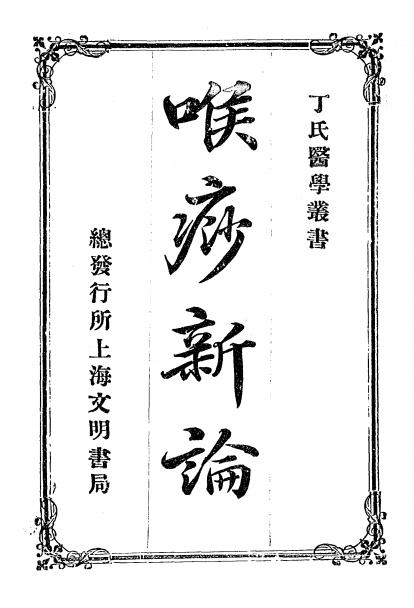 丁氏醫學叢書
喉痧新論
總發行所上海文明書局